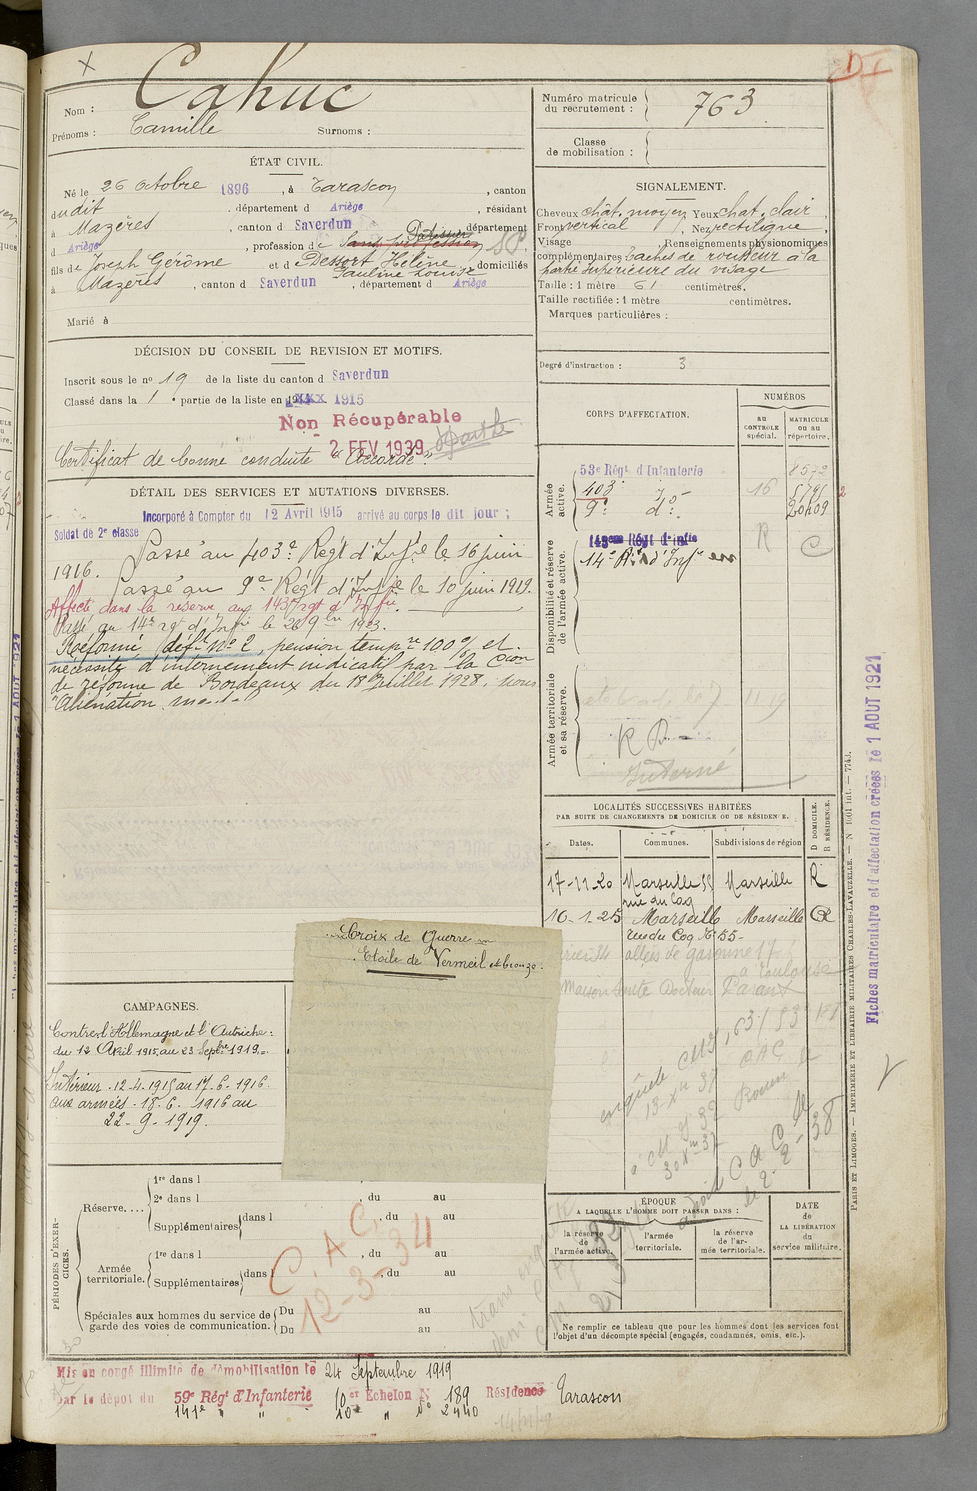 X
Nom : Cahuc
Prénoms : Camille Surnoms :
ÉTAT CIVIL.
Né le 26 Octobre 1896, à Tarascon, canton
dudit, département d Ariège, résidant
à Mazères, canton d Saverdun, département
d Ariège, profession de Sans profession Pâtissier SP.
fils de Joseph Gerôme et de Dessort Hélène
Pauline Louise, domiciliés
à Mazères, canton d Saverdun, département d Ariège
Marié à
DÉCISION DU CONSEIL DE REVISION ET MOTIFS.
Inscrit sous le no 19 de la liste du canton d Saverdun
Classé dans la 1 e partie de la liste en 1915
Non Récupérable
2 FEV 1939
Certificat de bonne conduite "Accordé".
DÉTAIL DES SERVICES ET MUTATIONS DIVERSES.
Incorporé à Compter du 12 Avril 1915 arrivé au corps le dit jour ;
Soldat de 2e classe
Passé au 403e Regt d'Infie le 16 juin
1916.
Passé au 9e Regt d'Infie le 10 juin 1919.
Affecté dans la réserve au 143e rgt d'Infie.
Passé au 14e rgt d'Infie le 26 9bre 1923.
Réformé déft no 2, pension tempre 100% et
nécessité d'internement indicatif par la Cion
de réforme de Bordeaux du 18 Juillet 1928, pour
"Aliénation mentale
Croix de Guerre
Etoile de Vermeil et bronze.
CAMPAGNES.
Contre l'Allemagne et l'Autriche :
du 12 Avril 1915 au 23 Septbre 1919.
Intérieur - 12-4-1915 au 17-6-1916
aux armées - 18-6-1916 au
22-9-1919.
PÉRIODES D'EXERCICES.
Réserve....
1re dans l
2e dans l , du au
Supplémentaires dans l , du au
Armée territoriale.
1re dans l , du au
Supplémentaires dans l , du au
Spéciales aux hommes du service de garde des voies de communication.
Du au
Du au
C.A.C.
12-3-34
Mis en congé illimité de démobilisation le 24 Septembre 1919
par le dépôt du 59e Régt d'Infanterie 10er Echelon N 189 Résidence Tarascon
141e " " 10e " No 2440
Numéro matricule du recrutement : 763
Classe de mobilisation :
SIGNALEMENT.
Cheveux chât. moyen Yeux chat. clair
Front vertical, Nez rectiligne
Visage Renseignements physionomiques
complémentaires taches de rousseur à la
partie supérieure du visage
Taille : 1 mètre 61 centimètres.
Taille rectifiée : 1 mètre centimètres.
Marques particulières :
Degré d'instruction : 3
CORPS D'AFFECTATION.
NUMÉROS
AU CONTROLE spécial.
MATRICULE ou au répertoire.
Armée active.
53e Régt d'Infanterie
403 do 16
9e do 20409
Disponibilité et réserve de l'armée active.
143eme Régt d'Infie R
14e Rt d'Infie
Armée territoriale et sa réserve.
R D
Interné
LOCALITÉS SUCCESSIVES HABITÉES
PAR SUITE DE CHANGEMENTS DE DOMICILE OU DE RÉSIDENCE.
Dates. Communes. Subdivisions de région
D DOMICILE.
R RÉSIDENCE.
17-11-20 Marseille 55 Marseille R
rue du Coq
10-1-25 Marseille Marseille R
rue du Coq No 55
allées de garonne 17
à Toulouse
Maison Santé Docteur Parant
enquête
13-XII 37
ÉPOQUE
A LAQUELLE L'HOMME DOIT PASSER DANS :
la réserve de l'armée active.
l'armée territoriale.
la réserve de l'armée territoriale.
DATE de LA LIBÉRATION du service militaire.
Ne remplir ce tableau que pour les hommes dont les services font
l'objet d'un décompte spécial (engagés, condamnés, omis, etc.).
PARIS ET LIMOGES. — IMPRIMERIE ET LIBRAIRIE MILITAIRES CHARLES-LAVAUZELLE. — N° 1001 int. — 7743.
Fiches matriculaire et d'affectation créées le 1 AOUT 1921